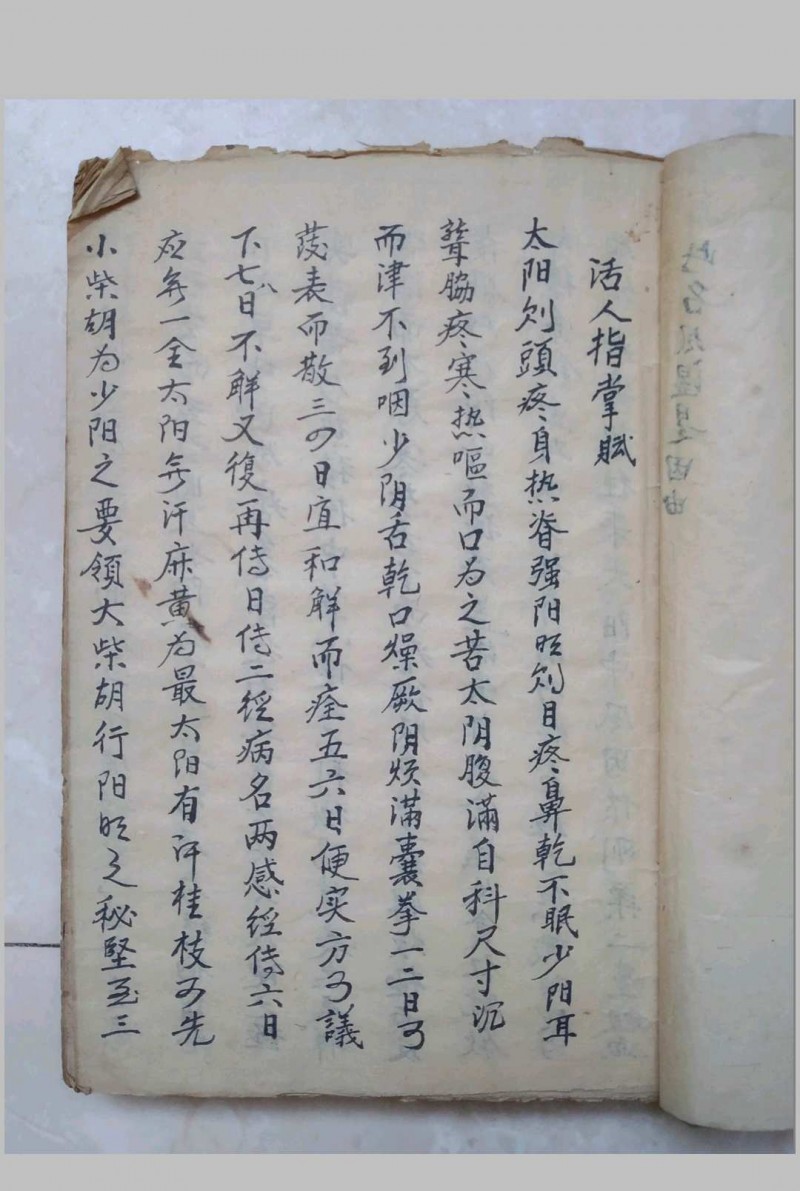 活人指掌賦
太阳则頭疼身热脊强阳明则目疼鼻乾不眠少阳耳
聋胁疼寒热嘔而口为之苦太阴腹滿自科尺寸沉
而津不到咽少阴舌乾口燥厥阴烦滿囊拳一二日可
發表而散三四日宜和解而痊五六日便实方可議
下七八日不解又復再传日传二经病名两感经传六日
应無一全太阳無汗麻黄为最太阳有汗桂枝可先
小柴胡为少阳之要領大柴胡行阳明之秘堅至三
此名風温是因由